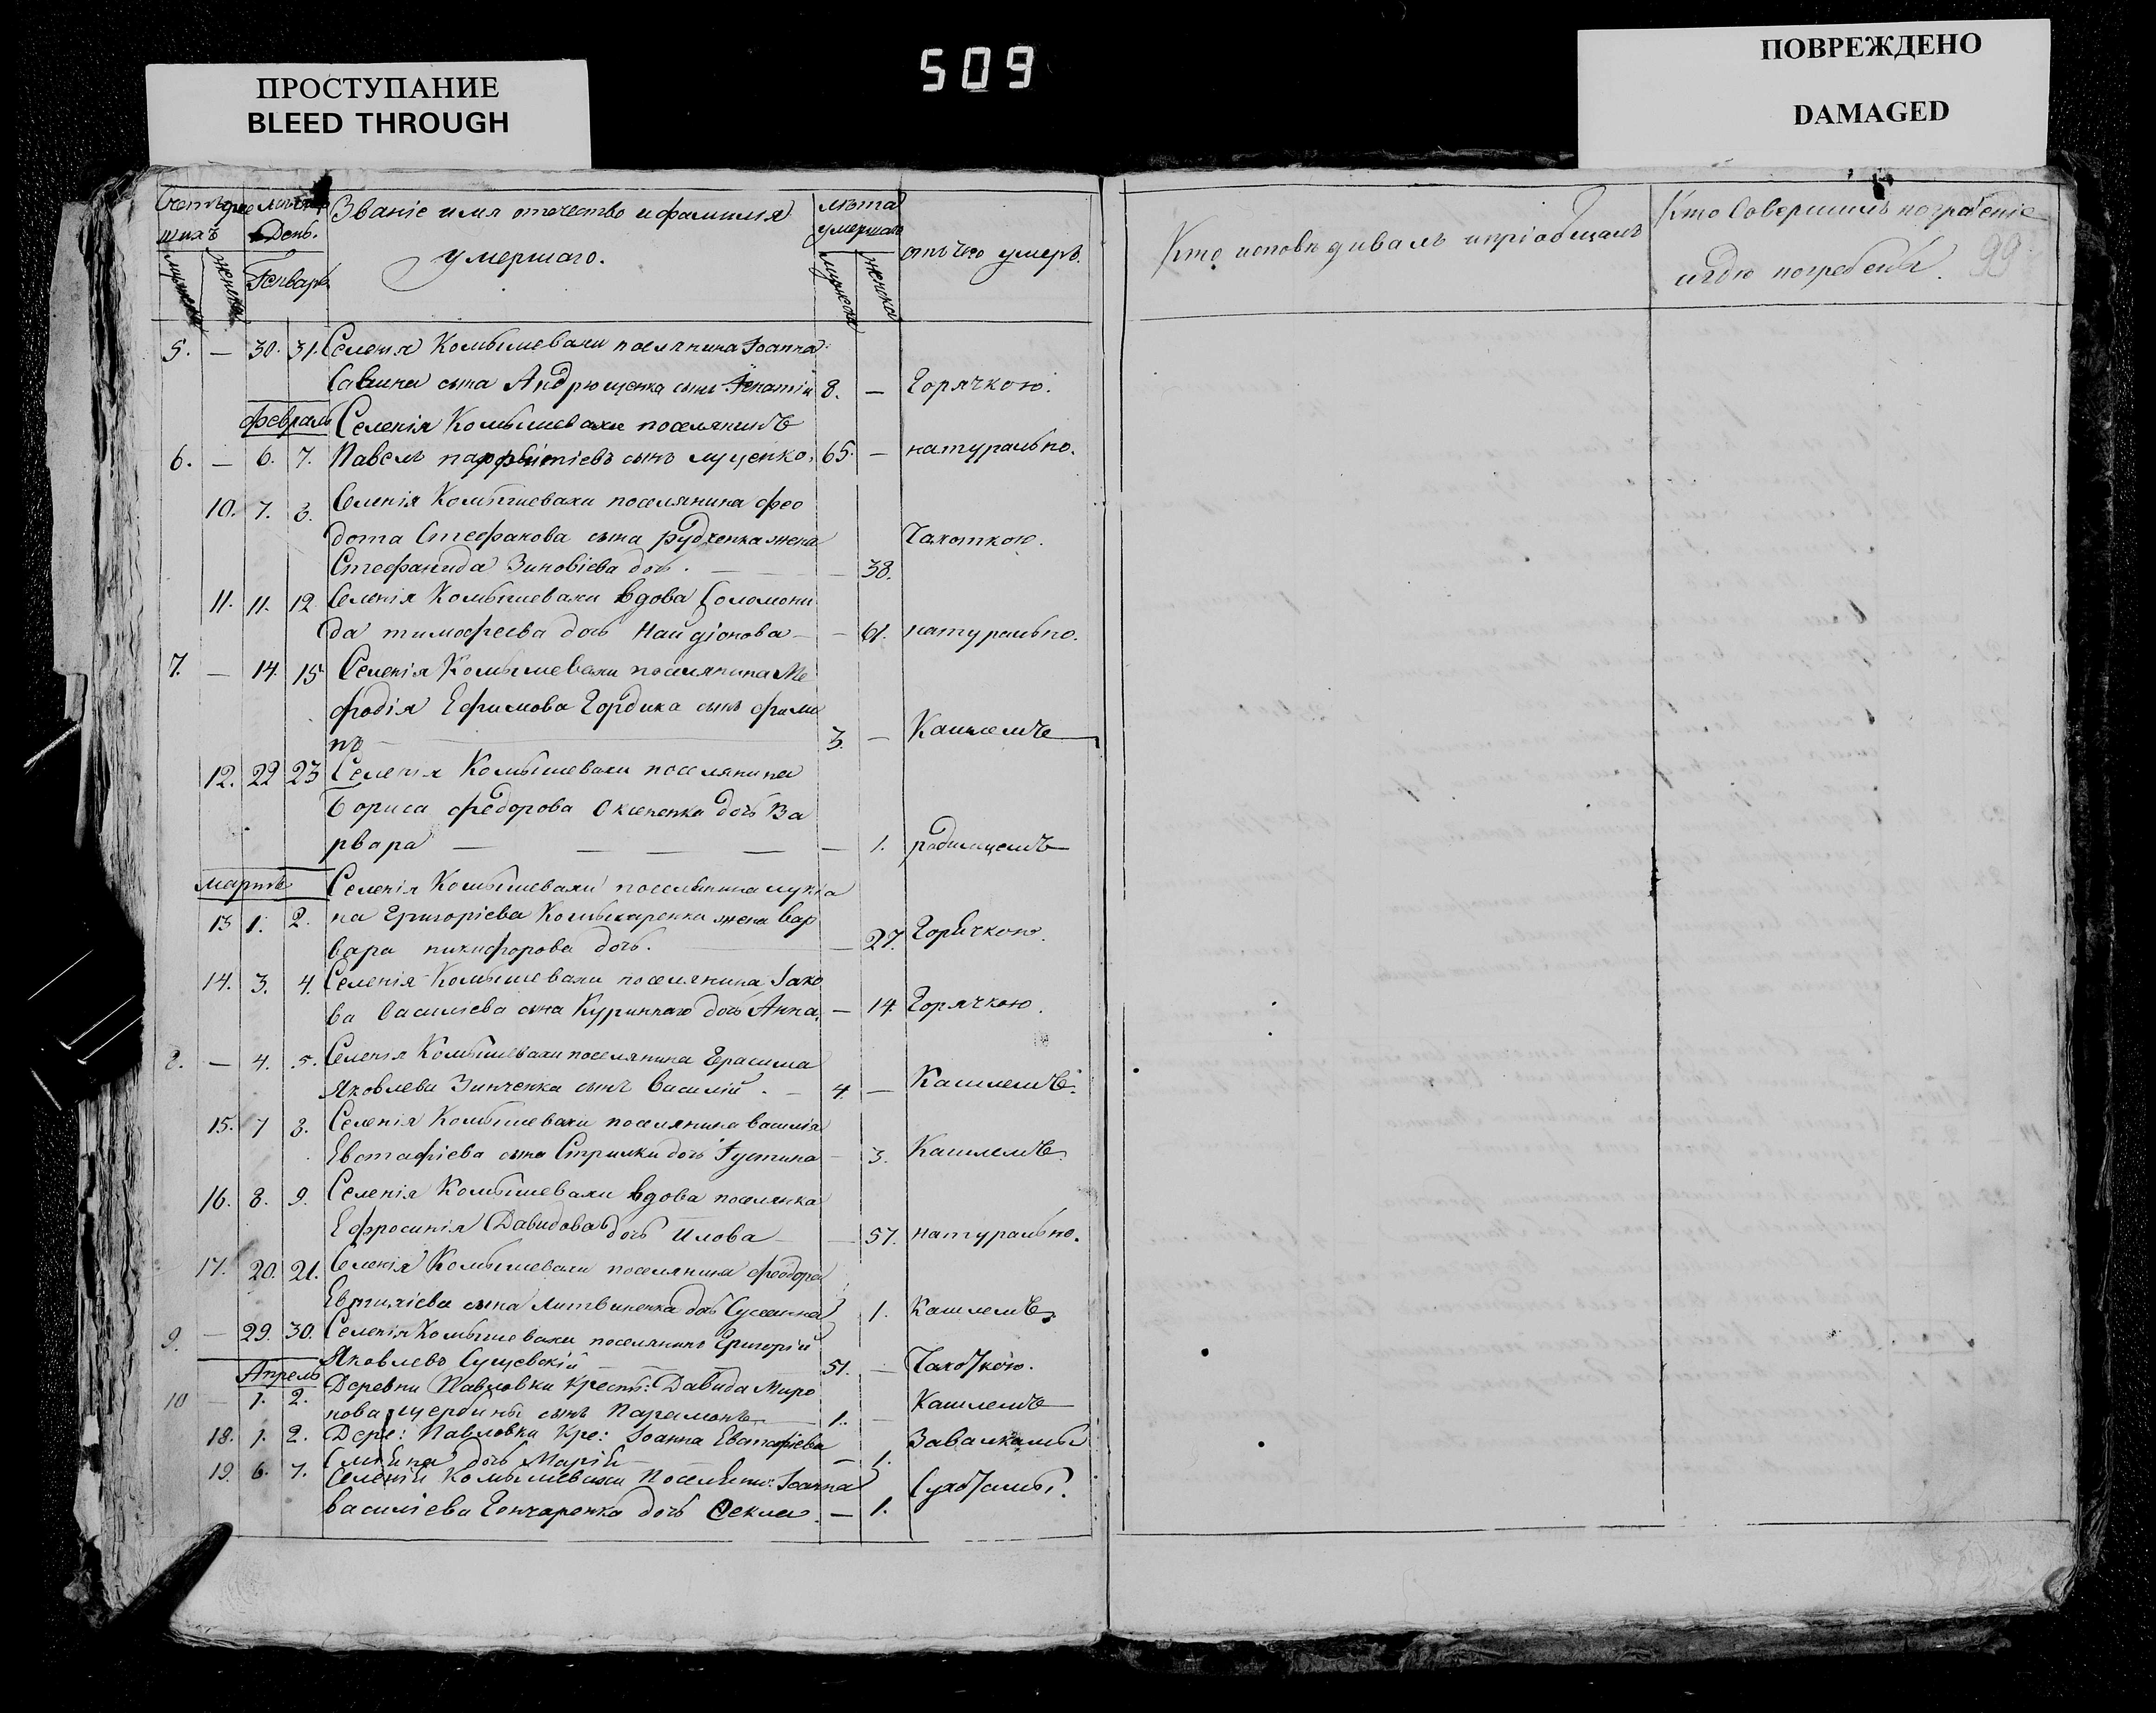 509
ПРОСТУПАНИЕ
BLEED THROUGH
ПОВРЕЖДЕНО
DAMAGED
Званіе имя отчество и фамилія
умершаго.
День.
Генварь
лѣта
умершаго
мужеска
женска
отъ чего умеръ.
Кто исповѣдивалъ и пріобщалъ
Кто Совершилъ погребеніе
и гдѣ погребены. 99
5. — 30. 31. Селенія Комышевахи поселянина Іоанна
Савина сына Андрющенка сынъ Игнатій 8. — Горячкою.
февраль Селенія Комышевахи поселянинъ
6. — 6. 7. Павелъ сынъ Луценко. 65. — натурально.
10. 7. 8. Селенія Комышевахи поселянина Фео
дота Стефанова сына Рудченка жена Чахоткою.
Стефанида Зиновіева дочь. — 38.
11. 11. 12. Селенія Комышевахи вдова Соломони
да Тимофеева дочь Найдіонова — 61. натурально.
7. — 14. 15. Селенія Комышевахи поселянина Ме
фодія Ефимова Гордика сынъ Фили
пъ 3. — Кашлемъ
12. 22 23 Селенія Комышевахи поселянина
Бориса Федорова дочь Ва
рвара — 1. родимцемъ
мартъ Селенія Комышевахи поселянина Лукія
13 1. 2. на Григоріева жена Вар
вара Никифорова дочь. — 27. Горячкою.
14. 3. 4. Селенія Комышевахи поселянина Іако
ва Василіева сына дочь Анна. — 14 Горячкою.
8. — 4. 5. Селенія Комышевахи поселянина Герасима
Яковлева Зинченка сынъ Василій. — 4. — Кашлемъ.
15. 7 8. Селенія Комышевахи поселянина Василія
Евстафіева сына Стрилки дочь Іустина — 3. Кашлемъ.
16. 8. 9. Селенія Комышевахи вдова поселянка
Ефросинія Давидова дочь — 57. натурально.
17. 20. 21. Селенія Комышевахи поселянина Феодора
Евтихіева сына Литвиненка дочь Сусанна 1. Кашлемъ.
9. — 29. 30. Селенія Комышевахи поселянинъ Григорій
Яковлевъ Сущевскій 51. — Чахоткою.
Апрель Деревни Павловки крест: Давида Миро
10 — 1. 2. нова Щербины сынъ Парамонъ — 1. — Кашлемъ
18. 1. 2. Дере: Павловки Кре: Іоанна Евстафіева Завалками
дочь Марія — 1.
19. 6. 7. Селенія Комышевахи Іоанна
Василіева Гончаренка дочь Фекла. — 1.